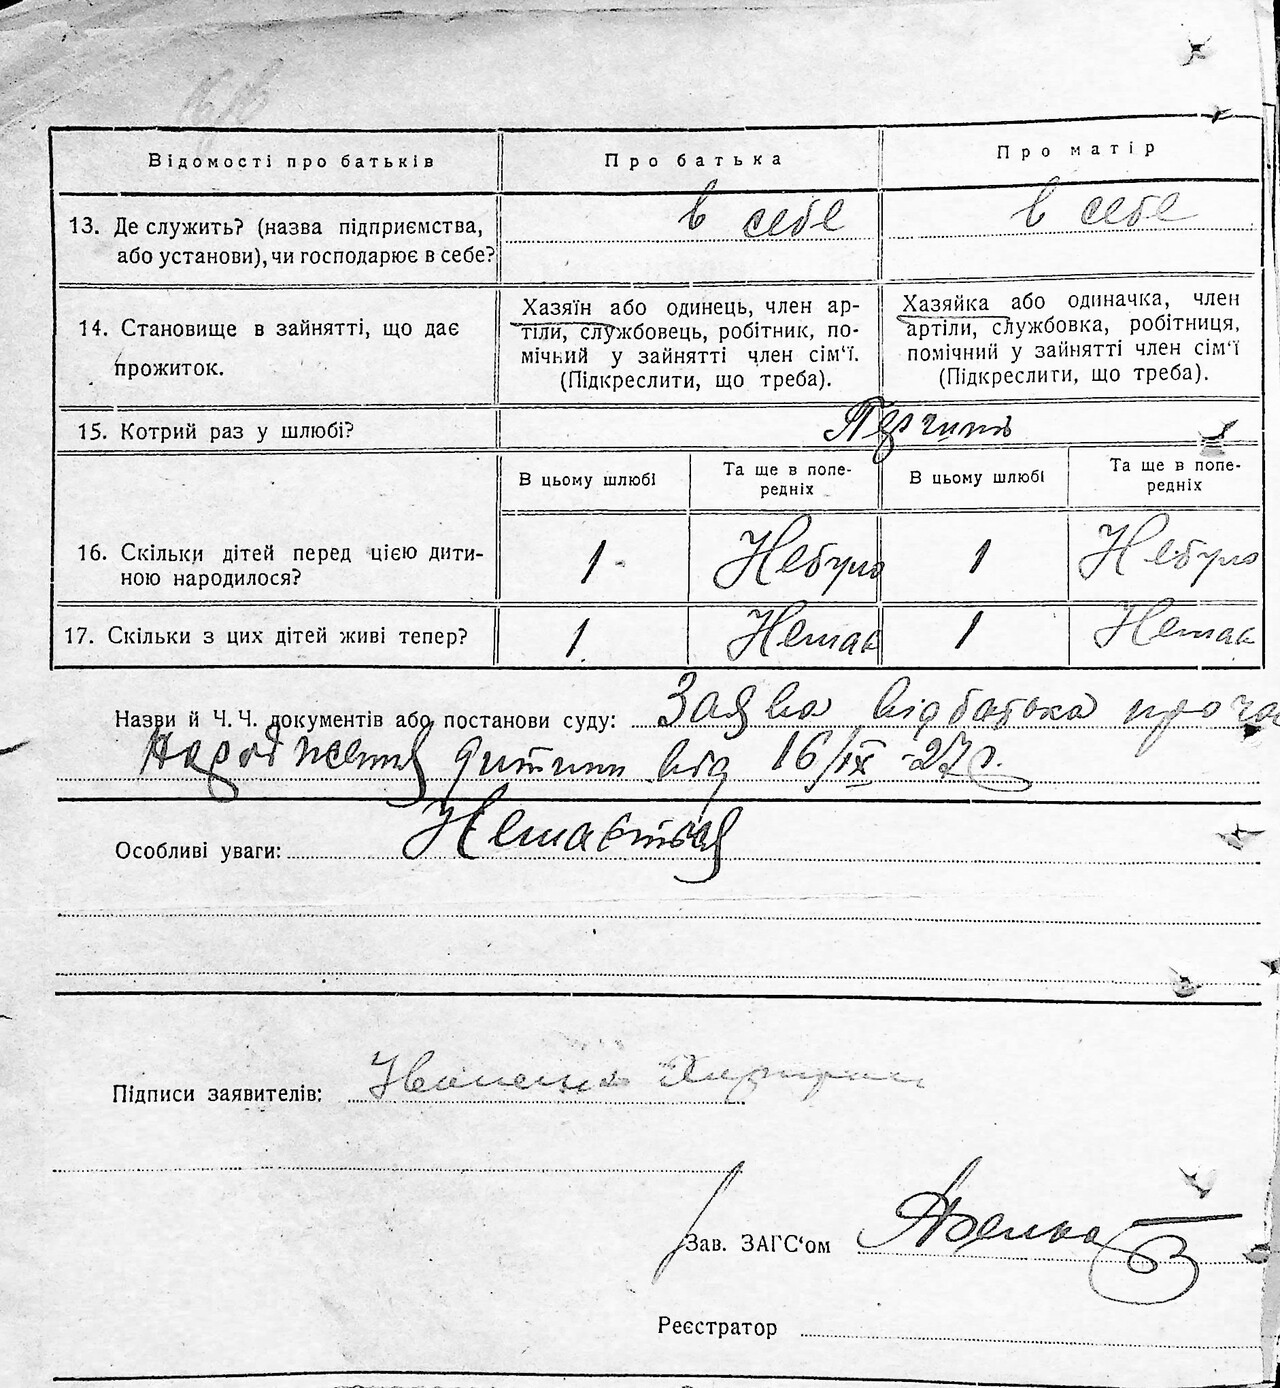 Відомості про батьків Про батька Про матір
13. Де служить? (назва підприємства, в себе в себе
або установи), чи господарює в себе?
14. Становище в зайнятті, що дає
прожиток.
Хазяїн або одинець, член ар-
тіли, службовець, робітник, по-
мічний у зайнятті член сім'ї.
(Підкреслити, що треба).
Хазяйка або одиначка, член
артіли, службовка, робітниця,
помічний у зайнятті член сім'ї
(Підкреслити, що треба).
15. Котрий раз у шлюбі?
В цьому шлюбі Та ще в попе-
редніх В цьому шлюбі Та ще в попе-
редніх
16. Скільки дітей перед цією дити-
ною народилося? 1 Небуло 1 Небуло
17. Скільки з цих дітей живі тепер? 1 Немає 1 Немає
Назви й Ч. Ч. документів або постанови суду: Заява від батька про
народження дитини від 16/IX 27 р.
Особливі уваги: Немається
Підписи заявителів:
Зав. ЗАГС'ом
Реєстратор